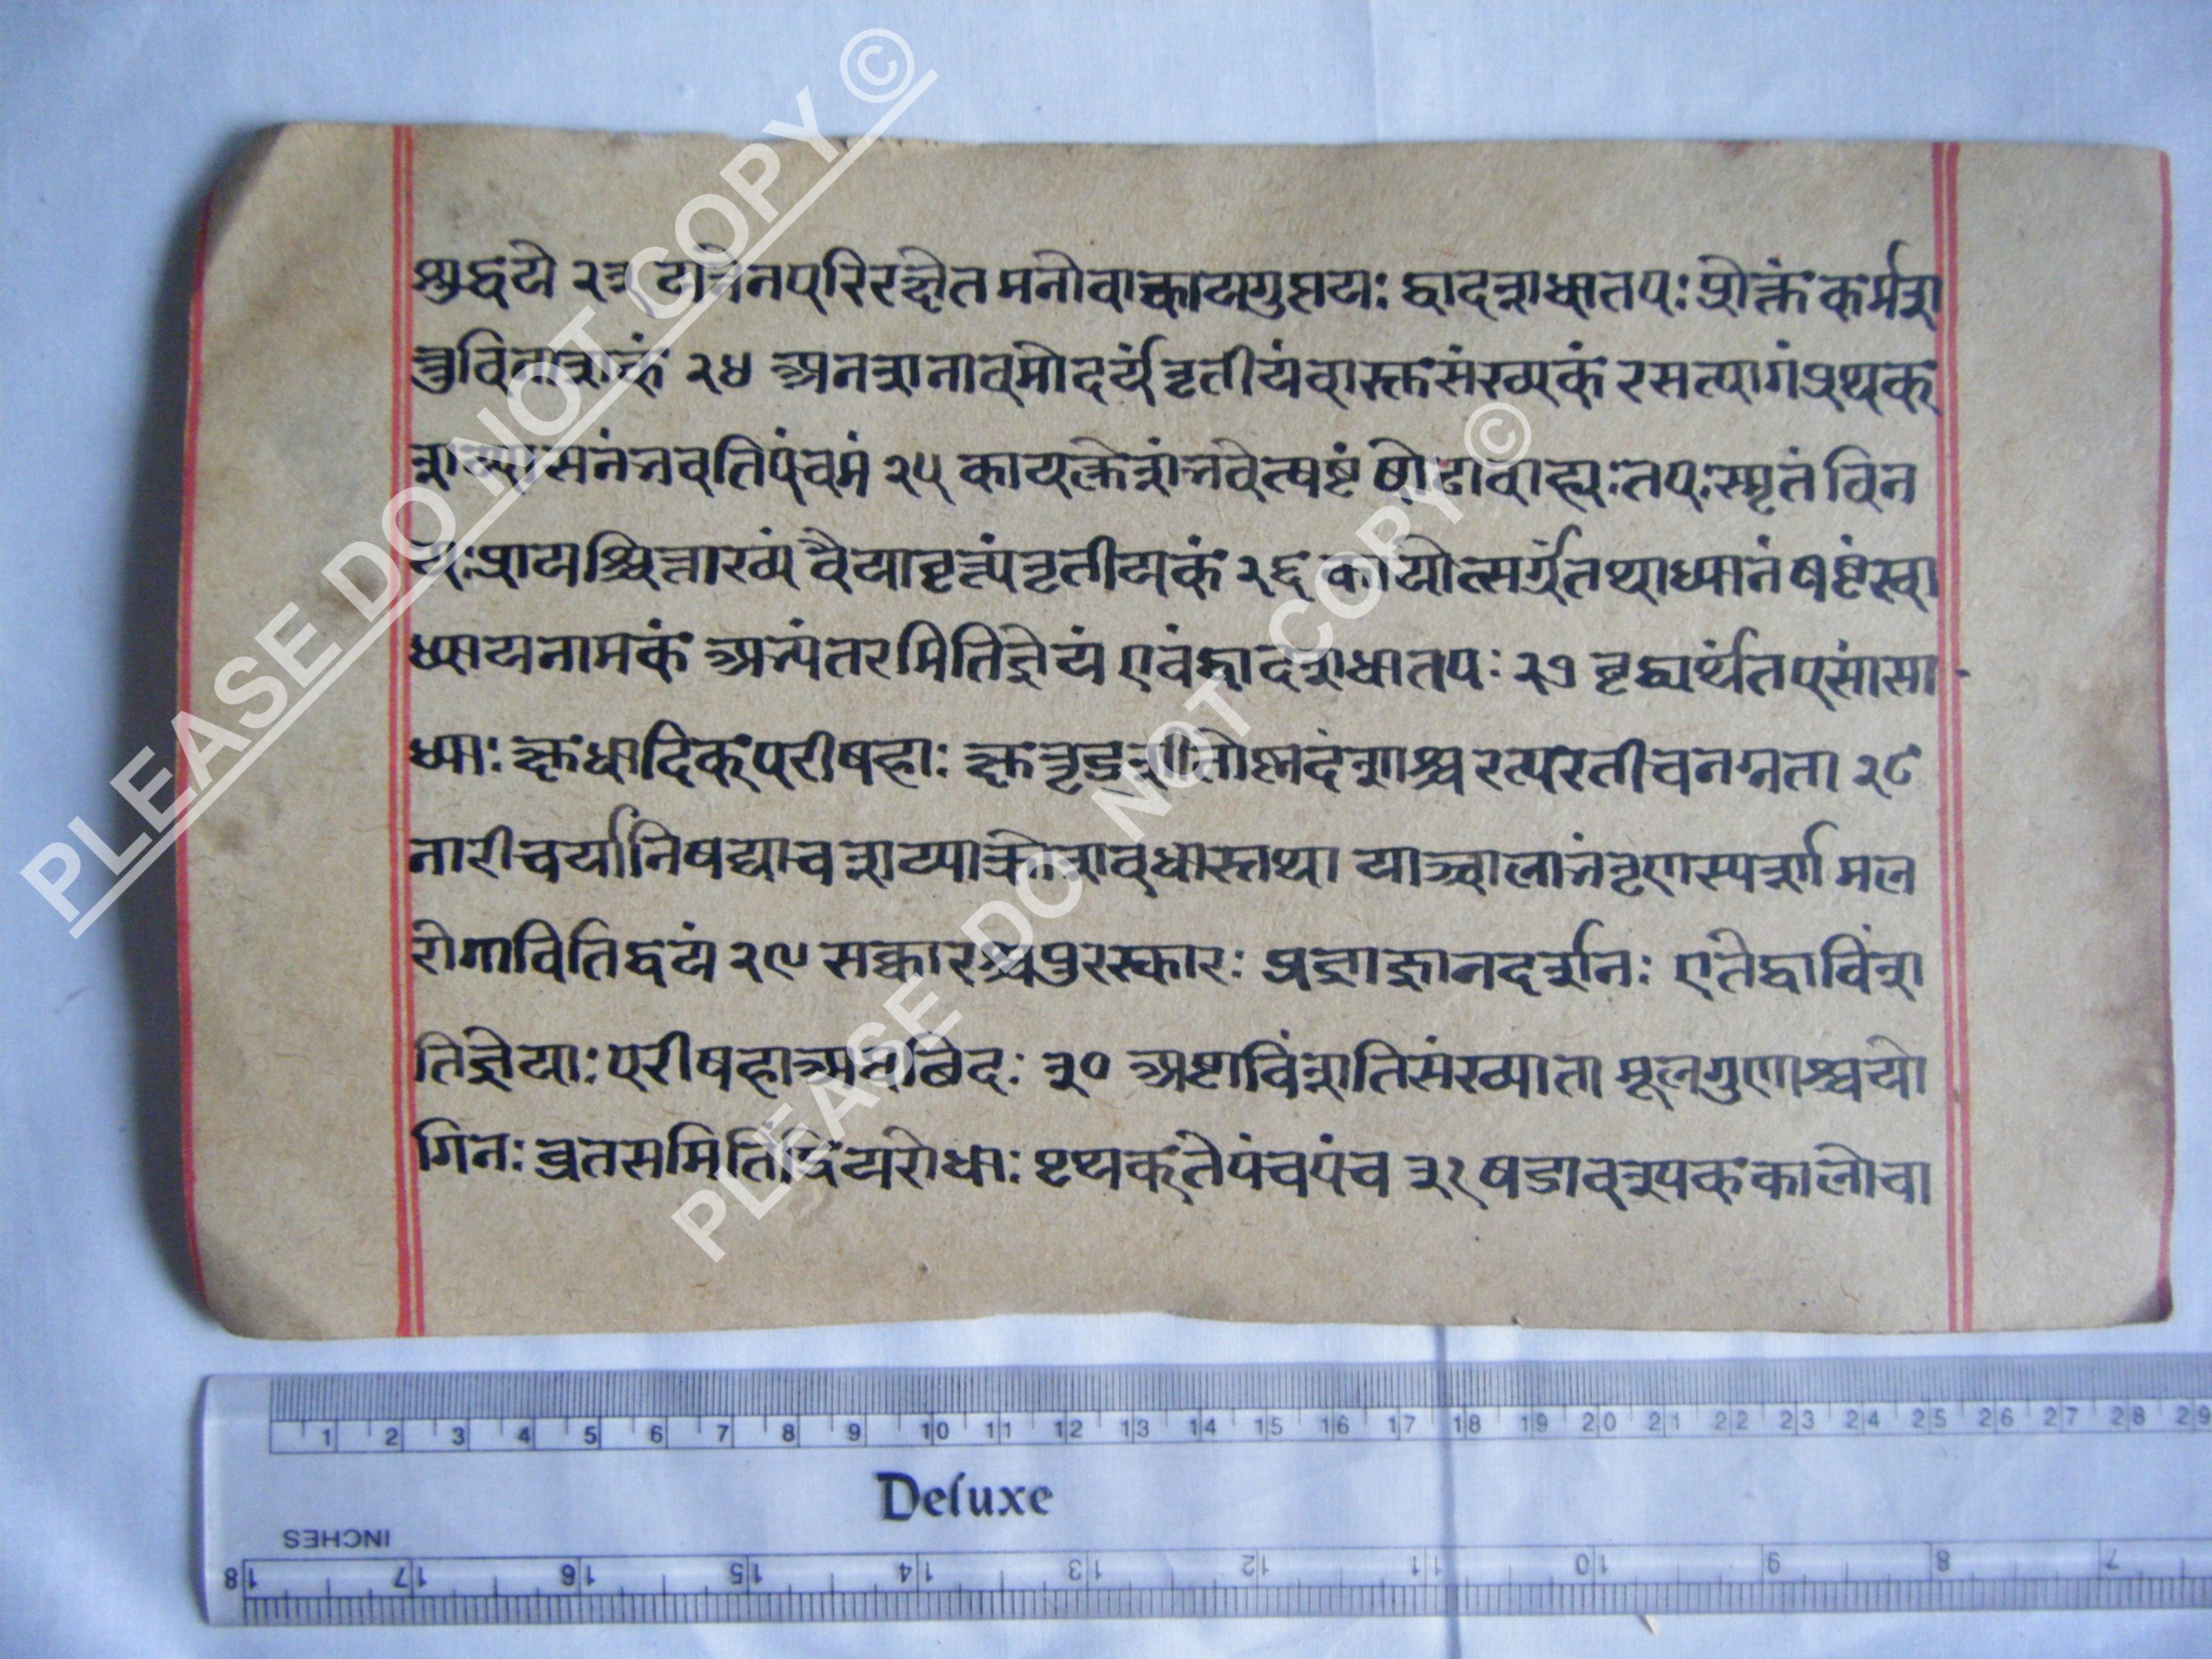 शुद्धये २३ यत्नेन परिरक्षेत मनोवाक्कायगुप्तयः द्वादशधा तपः प्रोक्तं कर्मश
त्रुविनाशकं २४ अनशनावमोदर्यं तृतीयं वास्तसंख्यकं रसत्यागं प्रथक्
शय्यासनं भवति पंचमं २५ कायक्लेशं भवेत्षष्टं षोढा वाह्यः तपः स्मृतं विन
यः प्रायश्चित्ताख्यं वैयावृत्यं तृतीयकं २६ कायोत्सर्गं तथा ध्यानं षष्टं स्वा
ध्यायनामकं अभ्यंतरमिति ज्ञेयं एवं द्वादशधा तपः २७ वृद्ध्यर्थं तपसां सा
ध्याः क्षुधादिकपरीषहाः क्षुतृड्शीतोष्णदंशाश्च रत्यरती च नग्नता २८
नारी चर्या निषद्या च शय्याक्रोशवधास्तथा याञ्चालाभं तृणस्पर्श मल
रोगाविति द्वयं २९ सत्कारश्च पुरस्कारः प्रज्ञाज्ञानदर्शनः एते द्वाविंश
ति ज्ञेयाः परीषहा अविदः ३० अष्टाविंशति संख्याता मूलगुणाश्च यो
गिनः व्रतसमितिंद्रियरोधाः पृथक् ते पंच पंच ३१ षडावश्यककालोचा
PLEASE DO NOT COPY ©
PLEASE DO NOT COPY ©
1 2 3 4 5 6 7 8 9 10 11 12 13 14 15 16 17 18 19 20 21 22 23 24 25 26 27 28 29
Deluxe
INCHES
18 17 16 15 14 13 12 11 10 9 8 7